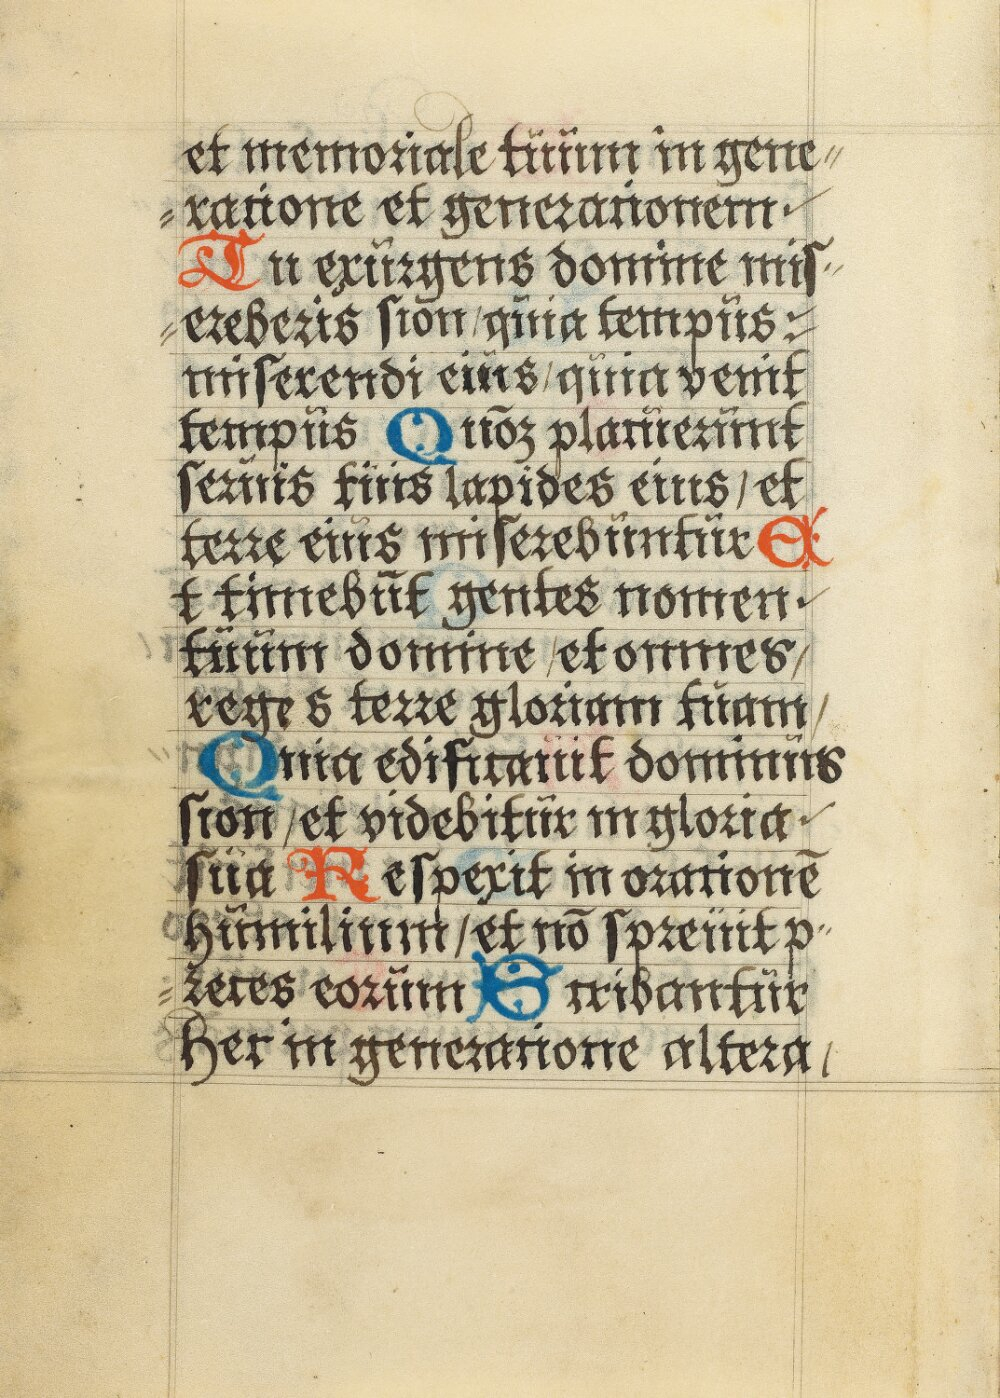 et memoriale tuum in gene//
=ratione et generationem·/
Tu exurgens domine mis-//
//ereberis sion/quia tempus:/
miserendi eius/quia venit
tempus Quoʒ placuerunt
seruis tuis lapides eius/et
terre eius miserebuntur E
t timebūt gentes nomen·/
tuum domine/et omnes/
reges terre gloriam tuam/
Quia edificauit dominus
sion/et videbitur in gloria·/
sua Respexit in orationē
humilium/et nō spreuit p-//
=reces eorum Scribantur
hec in generatione altera/